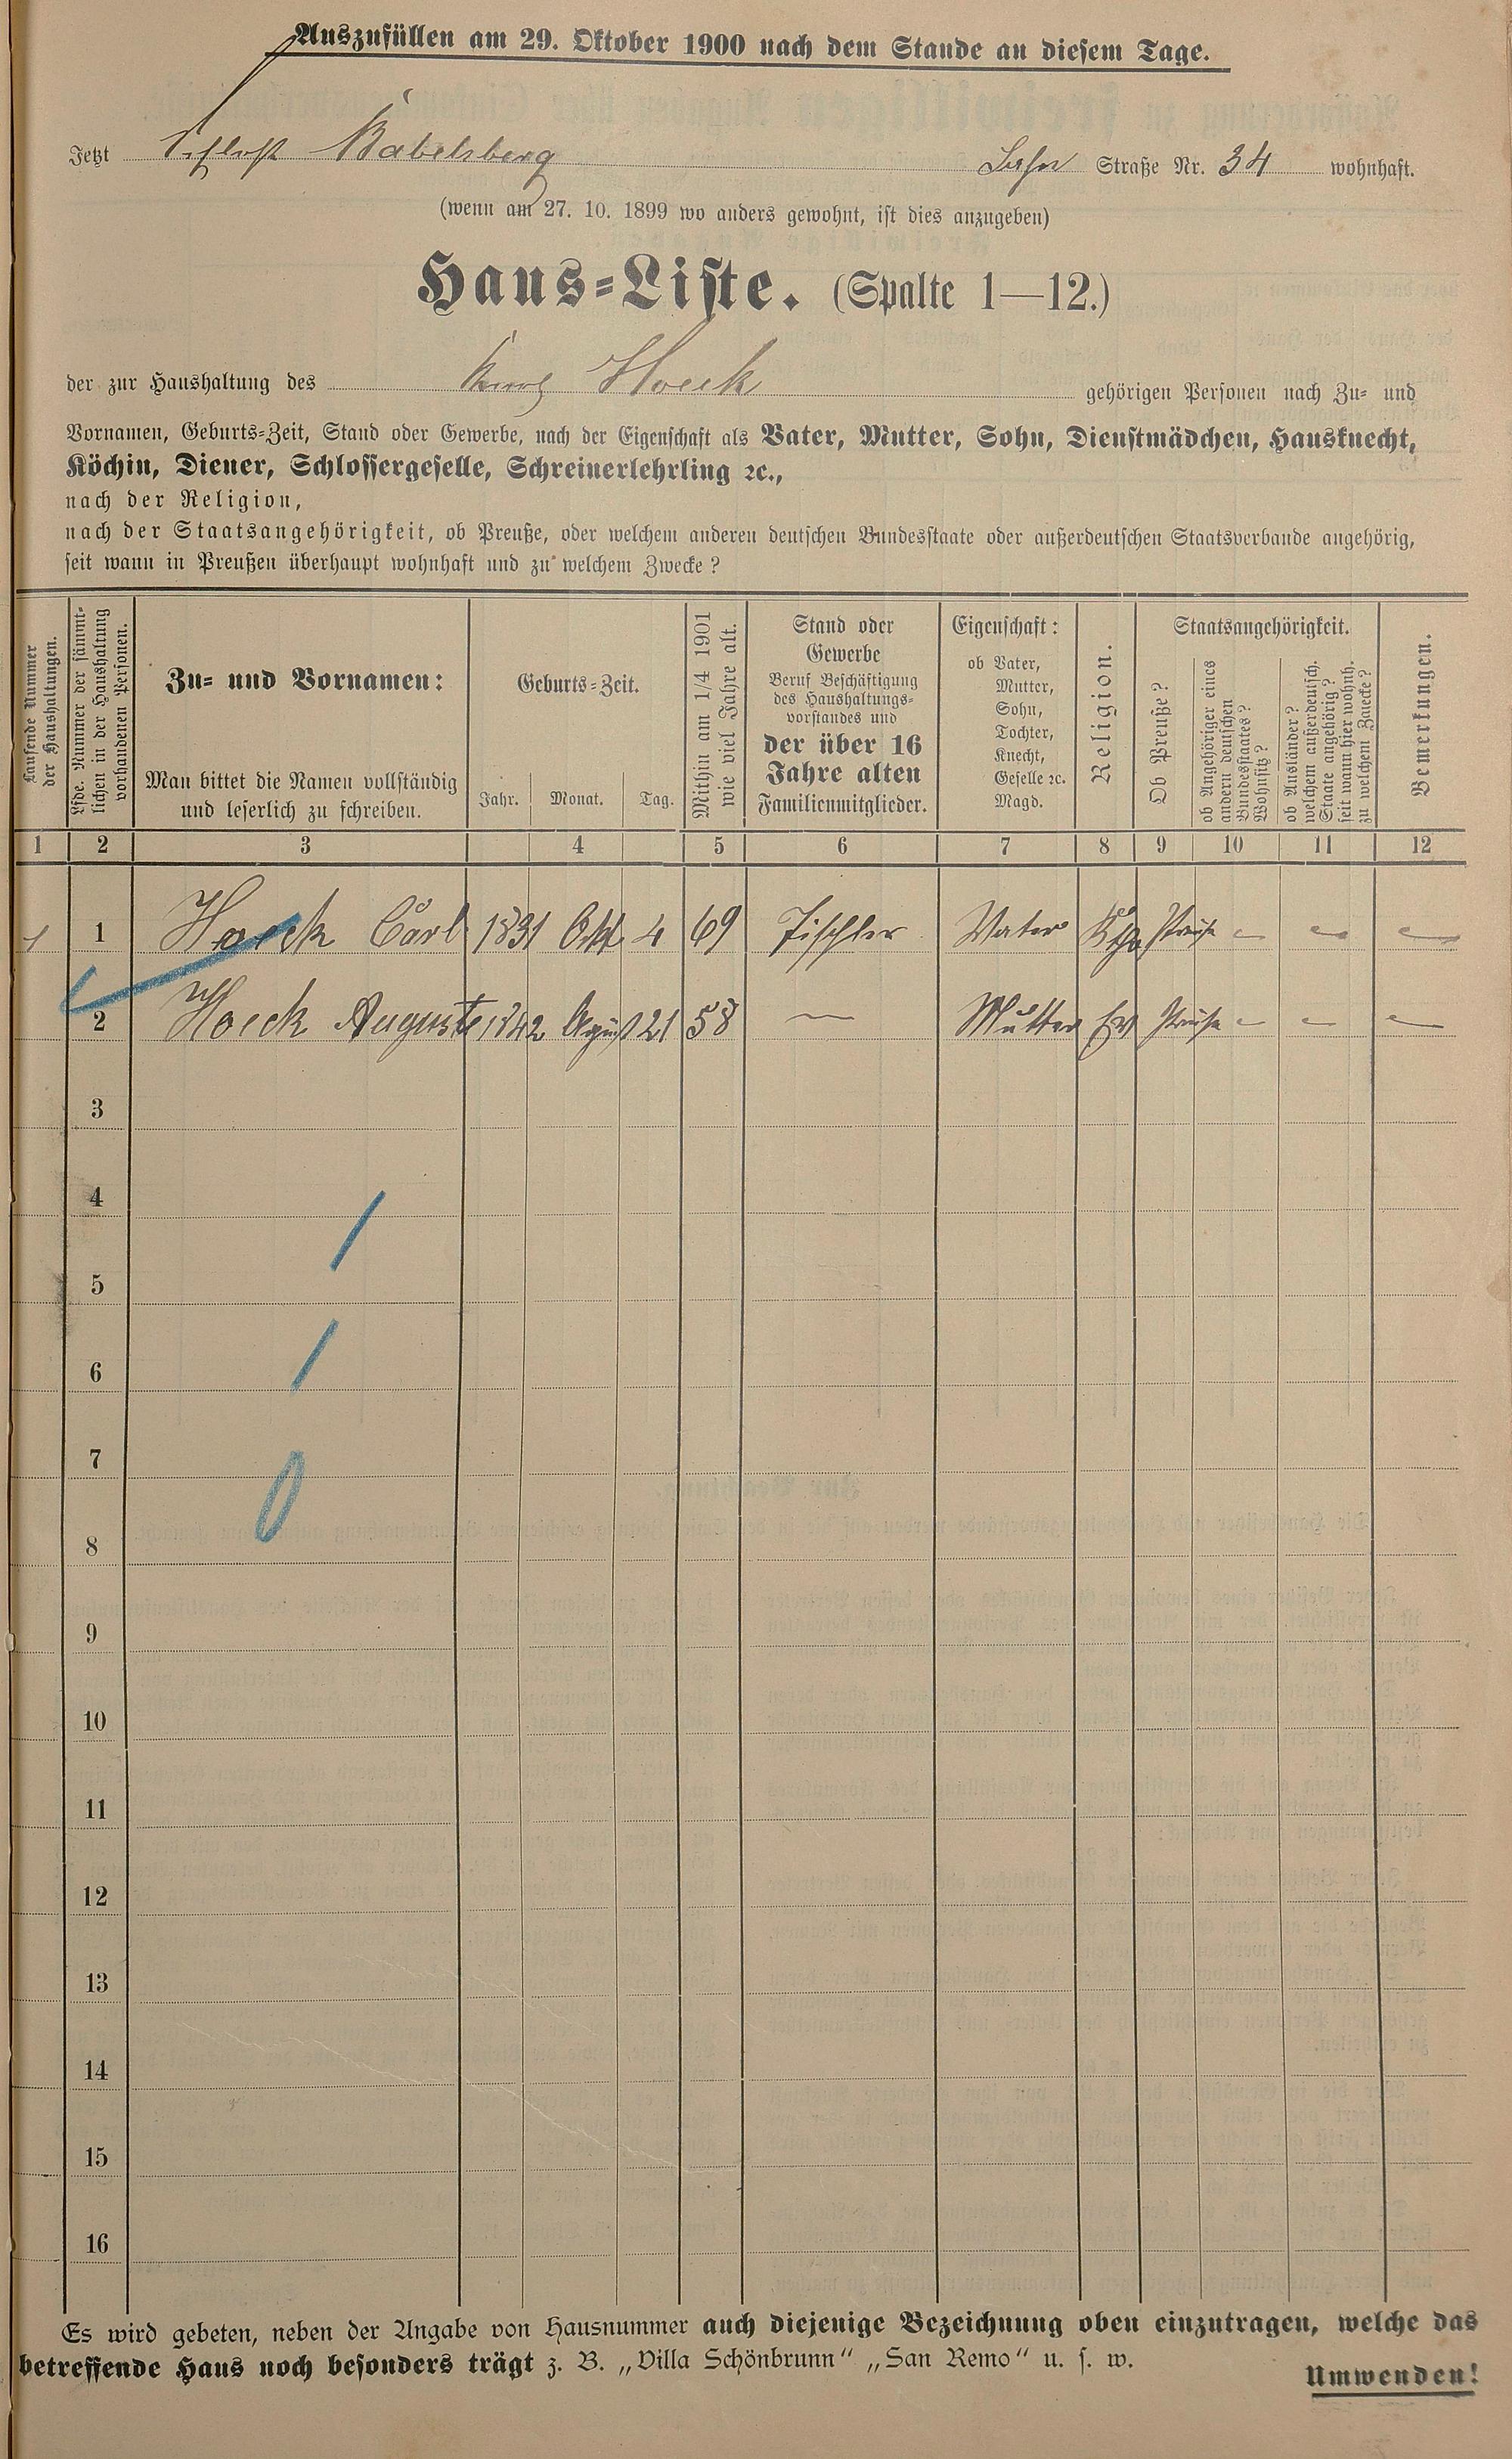 Auszufüllen am 29. Oktober 1900 nach dem Stande an diesem Tage.
Jetzt Schloß Babelsberg Straße Nr. 34 wohnhaft.
(wenn am 27. 10. 1899 wo anders gewohnt, ist dies anzugeben)
Haus-Liste. (Spalte 1—12.)
der zur Haushaltung des Hoeck gehörigen Personen nach Zu- und
Vornamen, Geburts-Zeit, Stand oder Gewerbe, nach der Eigenschaft als Vater, Mutter, Sohn, Dienstmädchen, Hausknecht,
Köchin, Diener, Schlossergeselle, Schreinerlehrling ꝛc.,
nach der Religion,
nach der Staatsangehörigkeit, ob Preuße, oder welchem anderen deutschen Bundesstaate oder außerdeutschen Staatsverbande angehörig,
seit wann in Preußen überhaupt wohnhaft und zu welchem Zwecke?
Laufende Nummer
der Haushaltungen.
Lfde. Nummer der sämmt-
lichen in der Haushaltung
vorhandenen Personen.
Zu- und Vornamen:
Man bittet die Namen vollständig
und leserlich zu schreiben.
Geburts-Zeit.
Jahr. Monat. Tag.
Mithin am 1/4 1901
wie viel Jahre alt.
Stand oder
Gewerbe
Beruf Beschäftigung
des Haushaltungs-
vorstandes und
der über 16
Jahre alten
Familienmitglieder.
Eigenschaft:
ob Vater,
Mutter,
Sohn,
Tochter,
Knecht,
Geselle ꝛc.
Magd.
Religion.
Staatsangehörigkeit.
Ob Preuße?
ob Angehöriger eines
andern deutschen
Bundesstaates?
Wohnsitz?
ob Ausländer?
welchem außerdeutsch.
Staate angehörig?
seit wann hier wohnh.
zu welchem Zwecke?
Bemerkungen.
1 2 3 4 5 6 7 8 9 10 11 12
1 1 Hoeck Carl 1831 Okt. 4 69 Tischler Vater Kth Preuße – – –
2 Hoeck Auguste 1842 August 21 58 – Mutter Ev Preuße – – –
3
4
5
6
7
8
9
10
11
12
13
14
15
16
Es wird gebeten, neben der Angabe von Hausnummer auch diejenige Bezeichnung oben einzutragen, welche das
betreffende Haus noch besonders trägt z. B. „Villa Schönbrunn“ „San Remo“ u. s. w.
Umwenden!